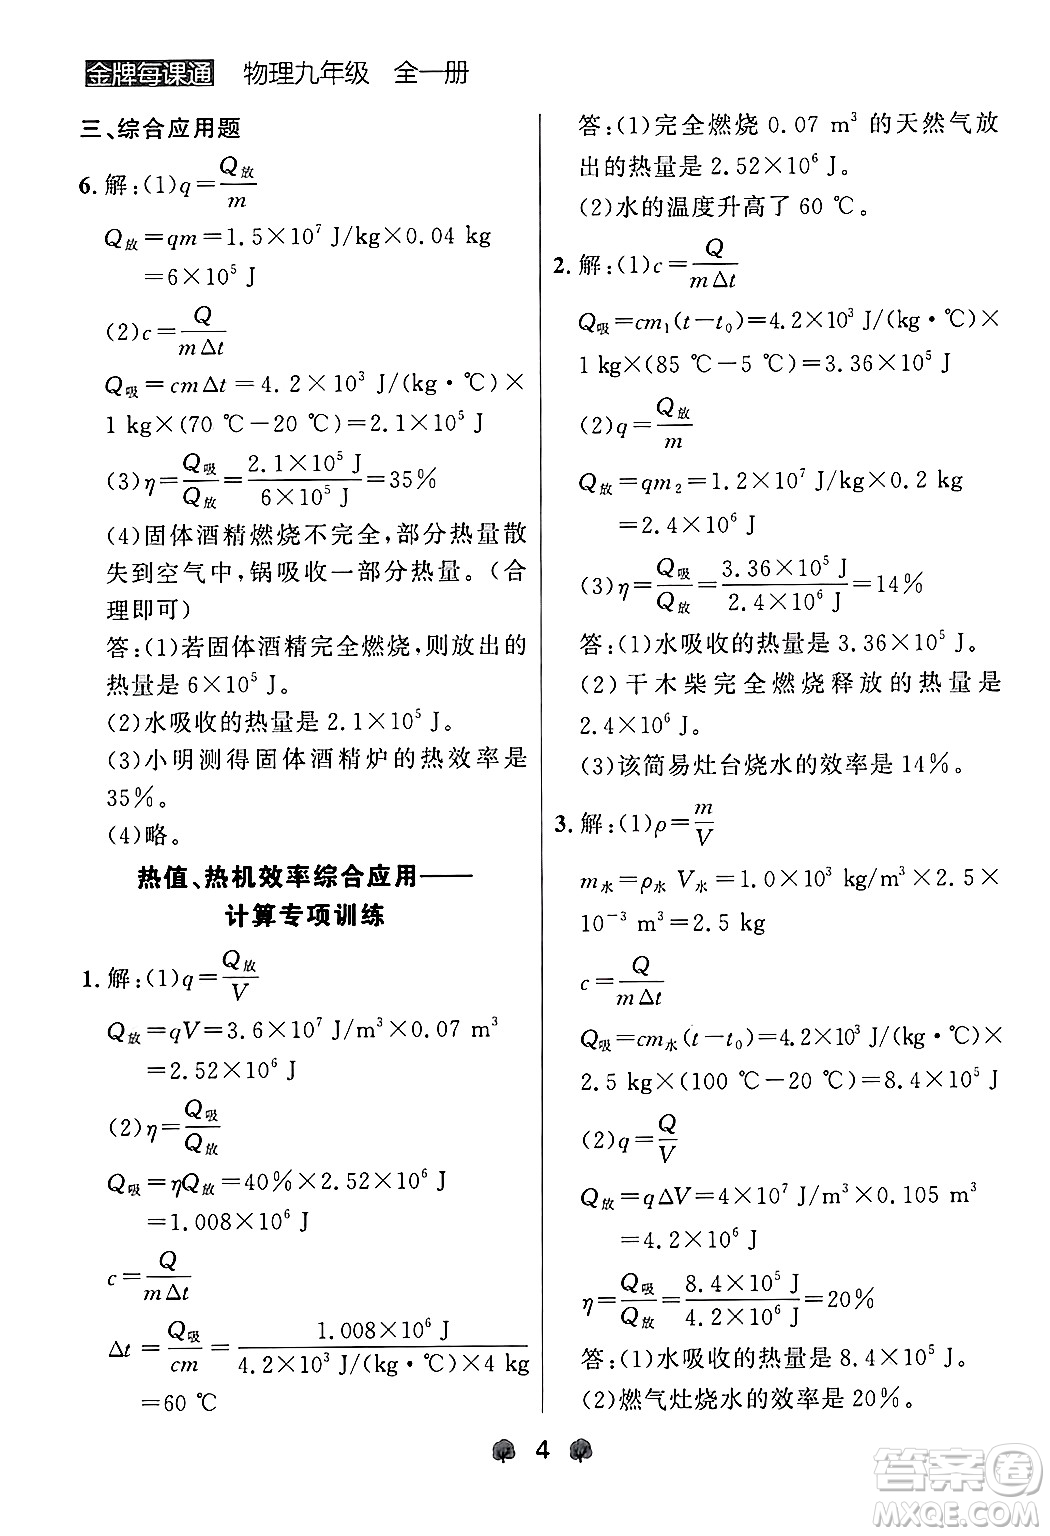 金牌每课通 物理九年级 全一册
三、综合应用题
6. 解:(1)q=Q放/m
Q放=qm=1.5×10⁷ J/kg×0.04 kg
=6×10⁵ J
(2)c=Q/(mΔt)
Q吸=cmΔt=4.2×10³ J/(kg·℃)×
1 kg×(70 ℃-20 ℃)=2.1×10⁵ J
(3)η=Q吸/Q放=(2.1×10⁵ J)/(6×10⁵ J)=35%
(4)固体酒精燃烧不完全,部分热量散
失到空气中,锅吸收一部分热量。(合
理即可)
答:(1)若固体酒精完全燃烧,则放出的
热量是 6×10⁵ J。
(2)水吸收的热量是 2.1×10⁵ J。
(3)小明测得固体酒精炉的热效率是
35%。
(4)略。
热值、热机效率综合应用——
计算专项训练
1. 解:(1)q=Q放/V
Q放=qV=3.6×10⁷ J/m³×0.07 m³
=2.52×10⁶ J
(2)η=Q吸/Q放
Q吸=ηQ放=40%×2.52×10⁶ J
=1.008×10⁶ J
c=Q/(mΔt)
Δt=Q吸/(cm)=(1.008×10⁶ J)/(4.2×10³ J/(kg·℃)×4 kg)
=60 ℃
答:(1)完全燃烧 0.07 m³ 的天然气放
出的热量是 2.52×10⁶ J。
(2)水的温度升高了 60 ℃。
2. 解:(1)c=Q/(mΔt)
Q吸=cm₁(t-t₀)=4.2×10³ J/(kg·℃)×
1 kg×(85 ℃-5 ℃)=3.36×10⁵ J
(2)q=Q放/m
Q放=qm₂=1.2×10⁷ J/kg×0.2 kg
=2.4×10⁶ J
(3)η=Q吸/Q放=(3.36×10⁵ J)/(2.4×10⁶ J)=14%
答:(1)水吸收的热量是 3.36×10⁵ J。
(2)干木柴完全燃烧释放的热量是
2.4×10⁶ J。
(3)该简易灶台烧水的效率是 14%。
3. 解:(1)ρ=m/V
m水=ρ水 V水=1.0×10³ kg/m³×2.5×
10⁻³ m³=2.5 kg
c=Q/(mΔt)
Q吸=cm水(t-t₀)=4.2×10³ J/(kg·℃)×
2.5 kg×(100 ℃-20 ℃)=8.4×10⁵ J
(2)q=Q/V
Q放=qΔV=4×10⁷ J/m³×0.105 m³
=4.2×10⁶ J
η=Q吸/Q放=(8.4×10⁵ J)/(4.2×10⁶ J)=20%
答:(1)水吸收的热量是 8.4×10⁵ J。
(2)燃气灶烧水的效率是 20%。
4
答案圈
MXQE.COM